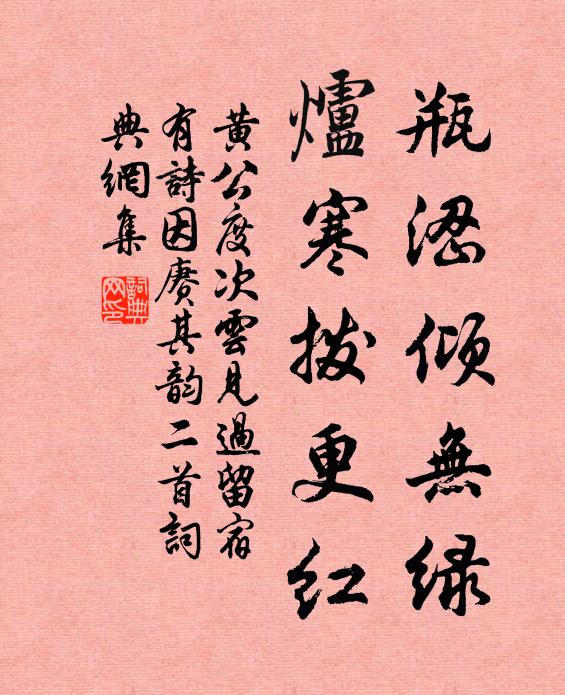 瓶澀傾無綠
爐寒撥更紅
黃公度次雲見過留宿
有詩因賡其韵二首詞
典網集
詞典網印